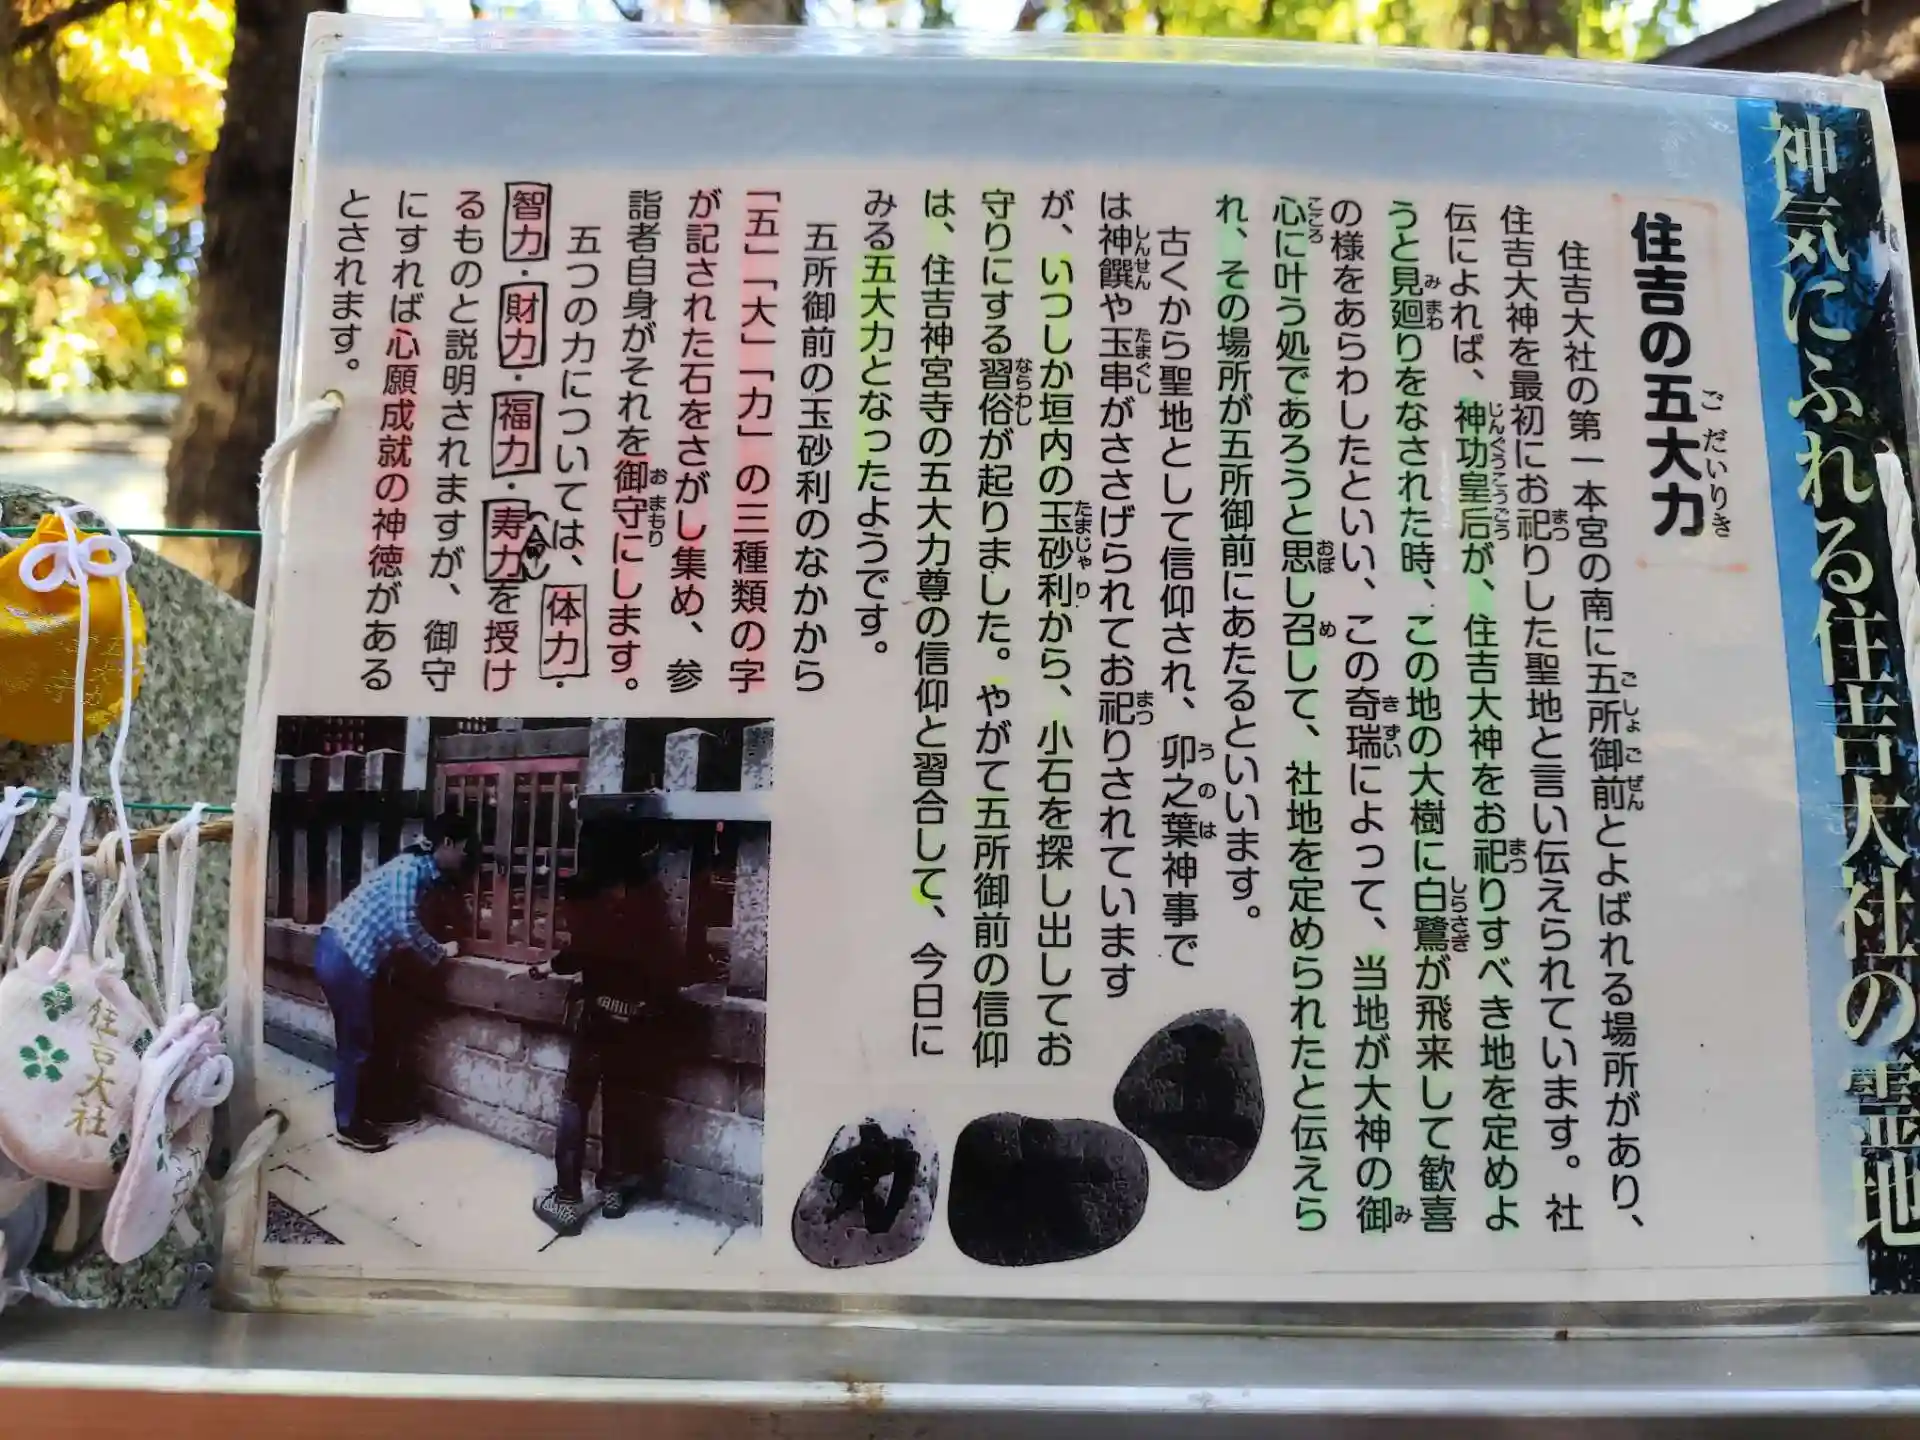 神気にふれる住吉大社の霊地
住吉の五大力
ごだいりき
住吉大社の第一本宮の南に五所御前とよばれる場所があり、
ごしょごぜん
住吉大神を最初にお祀りした聖地と言い伝えられています。社
まつ
伝によれば、神功皇后が、住吉大神をお祀りすべき地を定めよ
じんぐうこうごう
まつ
うと見廻りをなされた時、この地の大樹に白鷺が飛来して歓喜
みまわ
しらさぎ
の様をあらわしたといい、この奇瑞によって、当地が大神の御
きずい
み
心に叶う処であろうと思し召して、社地を定められたと伝えら
こころ
おぼ
め
れ、その場所が五所御前にあたるといいます。
古くから聖地として信仰され、卯之葉神事で
うのは
は神饌や玉串がささげられてお祀りされています
しんせん
たまぐし
まつ
が、いつしか垣内の玉砂利から、小石を探し出してお
たまじゃり
守りにする習俗が起りました。やがて五所御前の信仰
ならわし
は、住吉神宮寺の五大力尊の信仰と習合して、今日に
みる五大力となったようです。
五所御前の玉砂利のなかから
「五」「大」「力」の三種類の字
が記された石をさがし集め、参
詣者自身がそれを御守にします。
おまもり
五つの力については、体力・
智力・財力・福力・寿力を授け
(命)
るものと説明されますが、御守
にすれば心願成就の神徳がある
とされます。
力
住吉大社